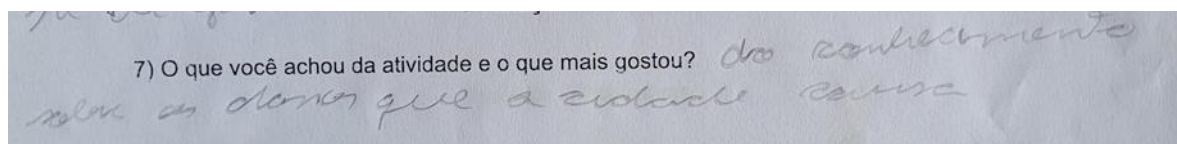 7) O que você achou da atividade e o que mais gostou? do conhecimento
sobre os danos que a cidade causa